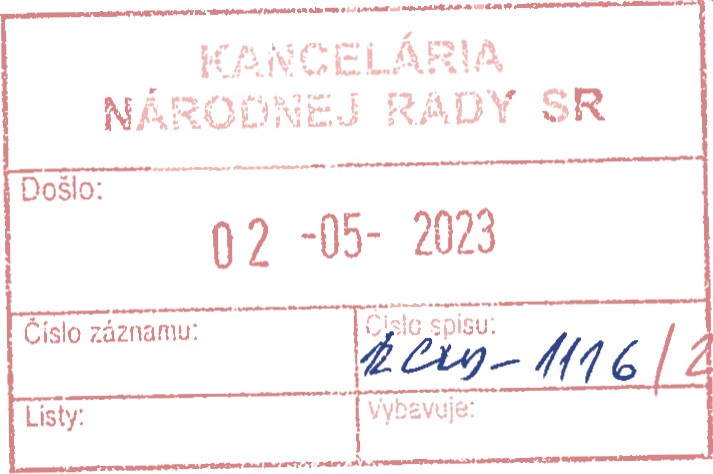 KANCELÁRIA
NÁRODNEJ RADY SR
Došlo:
02 -05- 2023
Číslo záznamu:
Číslo spisu:
-1116/2
Listy:
Vybavuje: